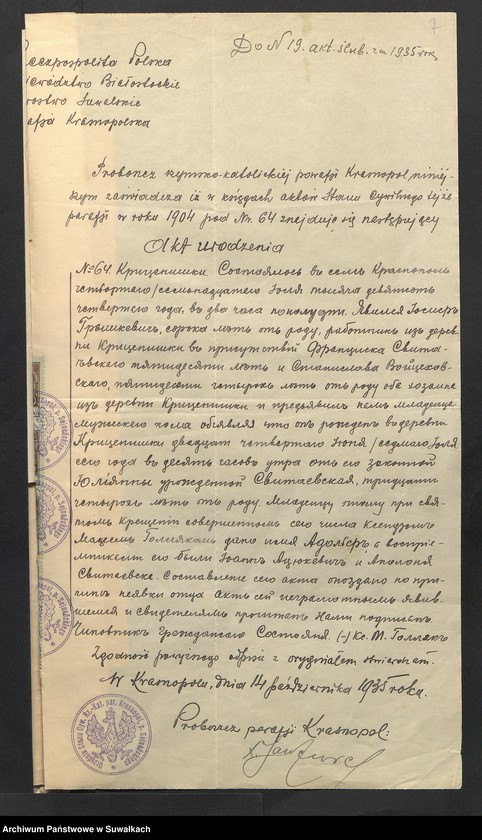 7
Do N 19. akt. ślub. za 1935 rok
Rzeczpospolita Polska
Białostockie
Suwalskie
Krasnopolska
Proboszcz rzymsko-katolickiej parafji Krasnopol, niniej-
szym zaświadcza iż w księgach aktów Stanu Cywilnego tejże
parafji w roku 1904 pod Nr. 64 znajduje się następujący
Akt urodzenia
№64 Криценишки. Состоялось въ селѣ Краснополь
четвертого/семнадцатаго Іюля тысяча девятьсотъ
четвертаго года, въ два часа пополудни. Явился Іосифъ
Грышкевичъ, сорока лѣтъ отъ роду, работникъ изъ дерев-
ни Криценишки въ присутствіи Франциска Свита-
евскаго пятидесяти лѣтъ и Станислава Войцехов-
скаго, пятидесяти четырехъ лѣтъ отъ роду обѣ хозяина
изъ деревни Криценишки и предъявилъ намъ младенца
мужескаго пола объявляя что онъ рожденъ въ деревни
Криценишки двадцать четвертаго Іюня/седмаго Іюля
сего года въ десять часовъ утра отъ его законной
Юліянны урожденной Свитаевская, тридцати
четырехъ лѣтъ отъ роду. Младенцу этому при свя-
томъ Крещеніи совершенномъ сего числа Ксендзомъ
Мацеемъ дано имя Адольфъ, а воспріе-
мниками его были Іоаннъ и Аполонія
Свитаевска. Составленіе сего акта опоздано по при-
чинѣ неявки отца Актъ сей неграмотнымъ явив-
шемся и свидетелямъ прочитанъ Нами подписанъ
Чиновникъ Гражданскаго Состоянія. (-) Кс. М.
Zgodność powyższego odpisu z oryginałem stwierdzam.
W Krasnopolu, dnia 14 października 1935 roku.
Proboszcz parafji Krasnopol:
Archiwum Państwowe w Suwałkach